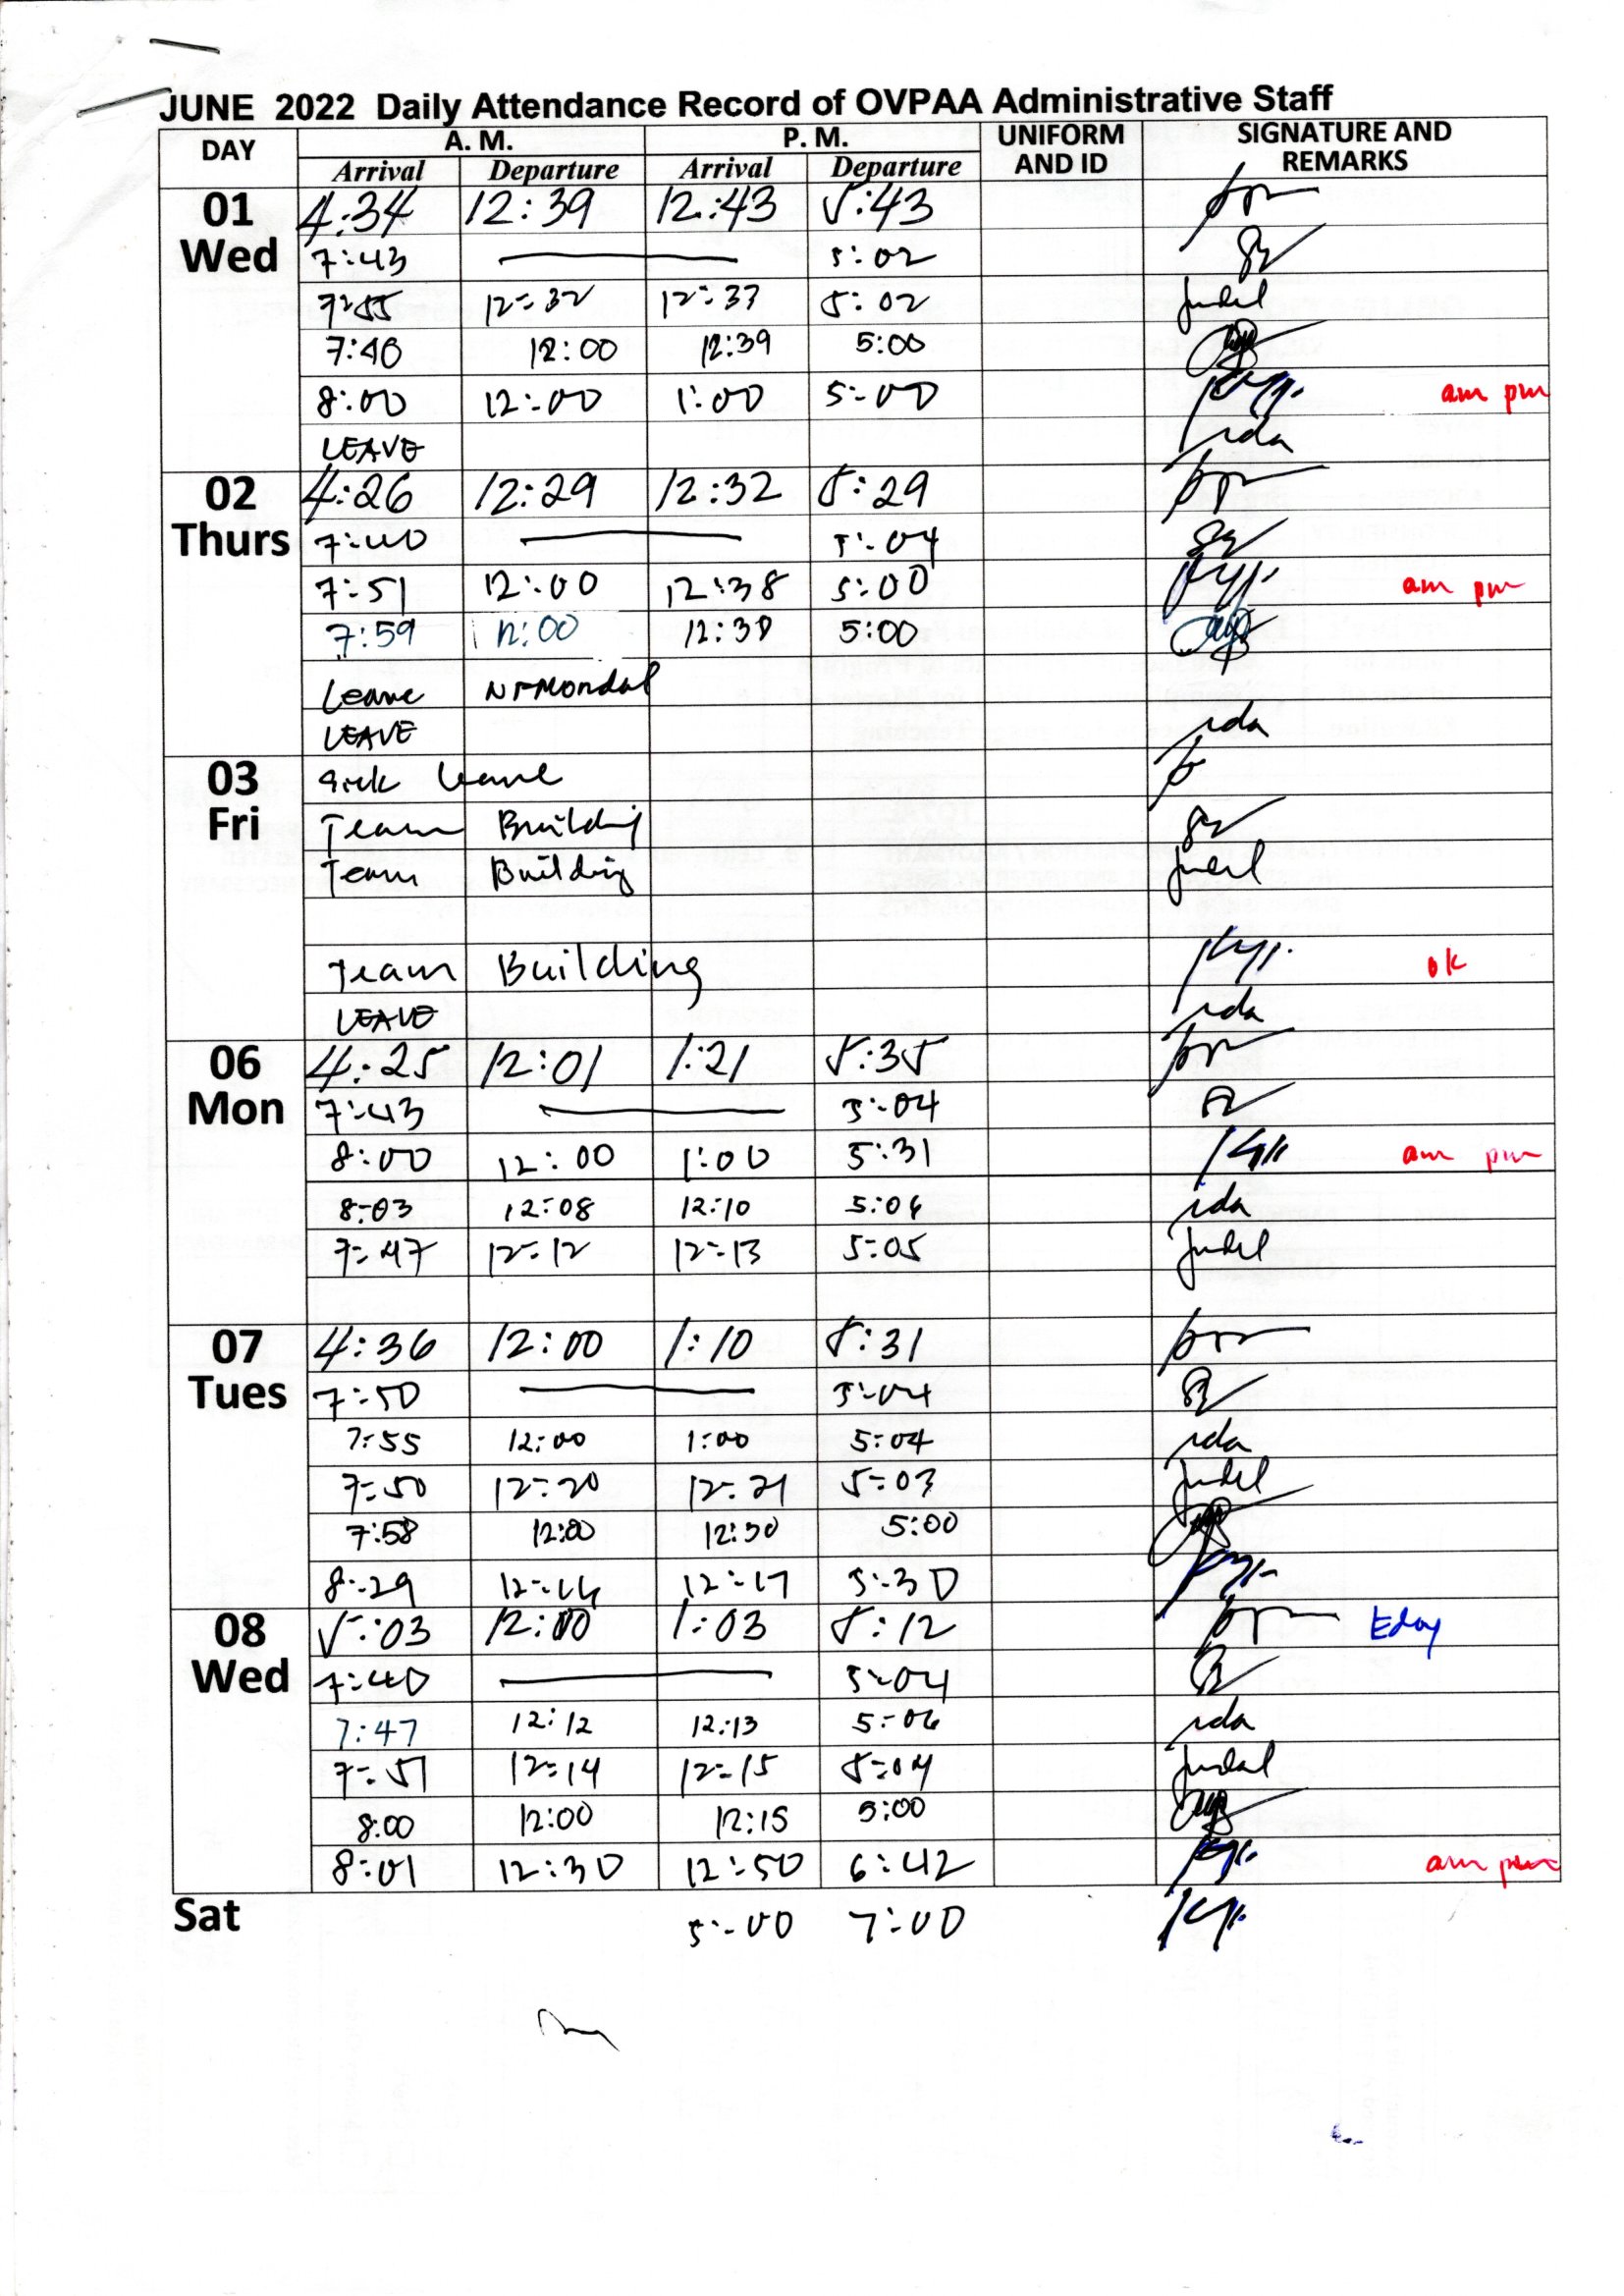 JUNE 2022 Daily Attendance Record of OVPAA Administrative Staff
DAY A. M. P. M. UNIFORM AND ID SIGNATURE AND REMARKS
Arrival Departure Arrival Departure
01 Wed
4:34 12:39 12:43 5:43
7:43 5:02
7:55 12:32 12:33 5:02 Judel
7:46 12:00 12:39 5:00
8:00 12:00 1:00 5:00 am pm
LEAVE ida
02 Thurs
4:26 12:29 12:32 5:29
7:40 5:04
7:51 12:00 12:38 5:00 am pm
7:59 12:00 12:30 5:00
Leave
LEAVE ida
03 Fri
Sick Leave
Team Building
Team Building Judel
Team Building ok
LEAVE ida
06 Mon
4:25 12:01 1:21 5:35
7:43 5:04
8:00 12:00 1:00 5:31 am pm
8:03 12:08 12:10 5:06 ida
7:47 12:12 12:13 5:05 Judel
07 Tues
4:36 12:00 1:10 5:31
7:50 5:04
7:55 12:00 1:00 5:04 ida
7:50 12:20 12:21 5:03 Judel
7:58 12:00 12:30 5:00
8:29 12:16 12:17 5:30
08 Wed
5:03 12:00 1:03 5:12 Eday
7:40 5:04
7:47 12:12 12:13 5:06 ida
7:51 12:14 12:15 5:04 Judel
8:00 12:00 12:15 5:00
8:01 12:30 12:50 6:42 am pm
Sat 5:00 7:00